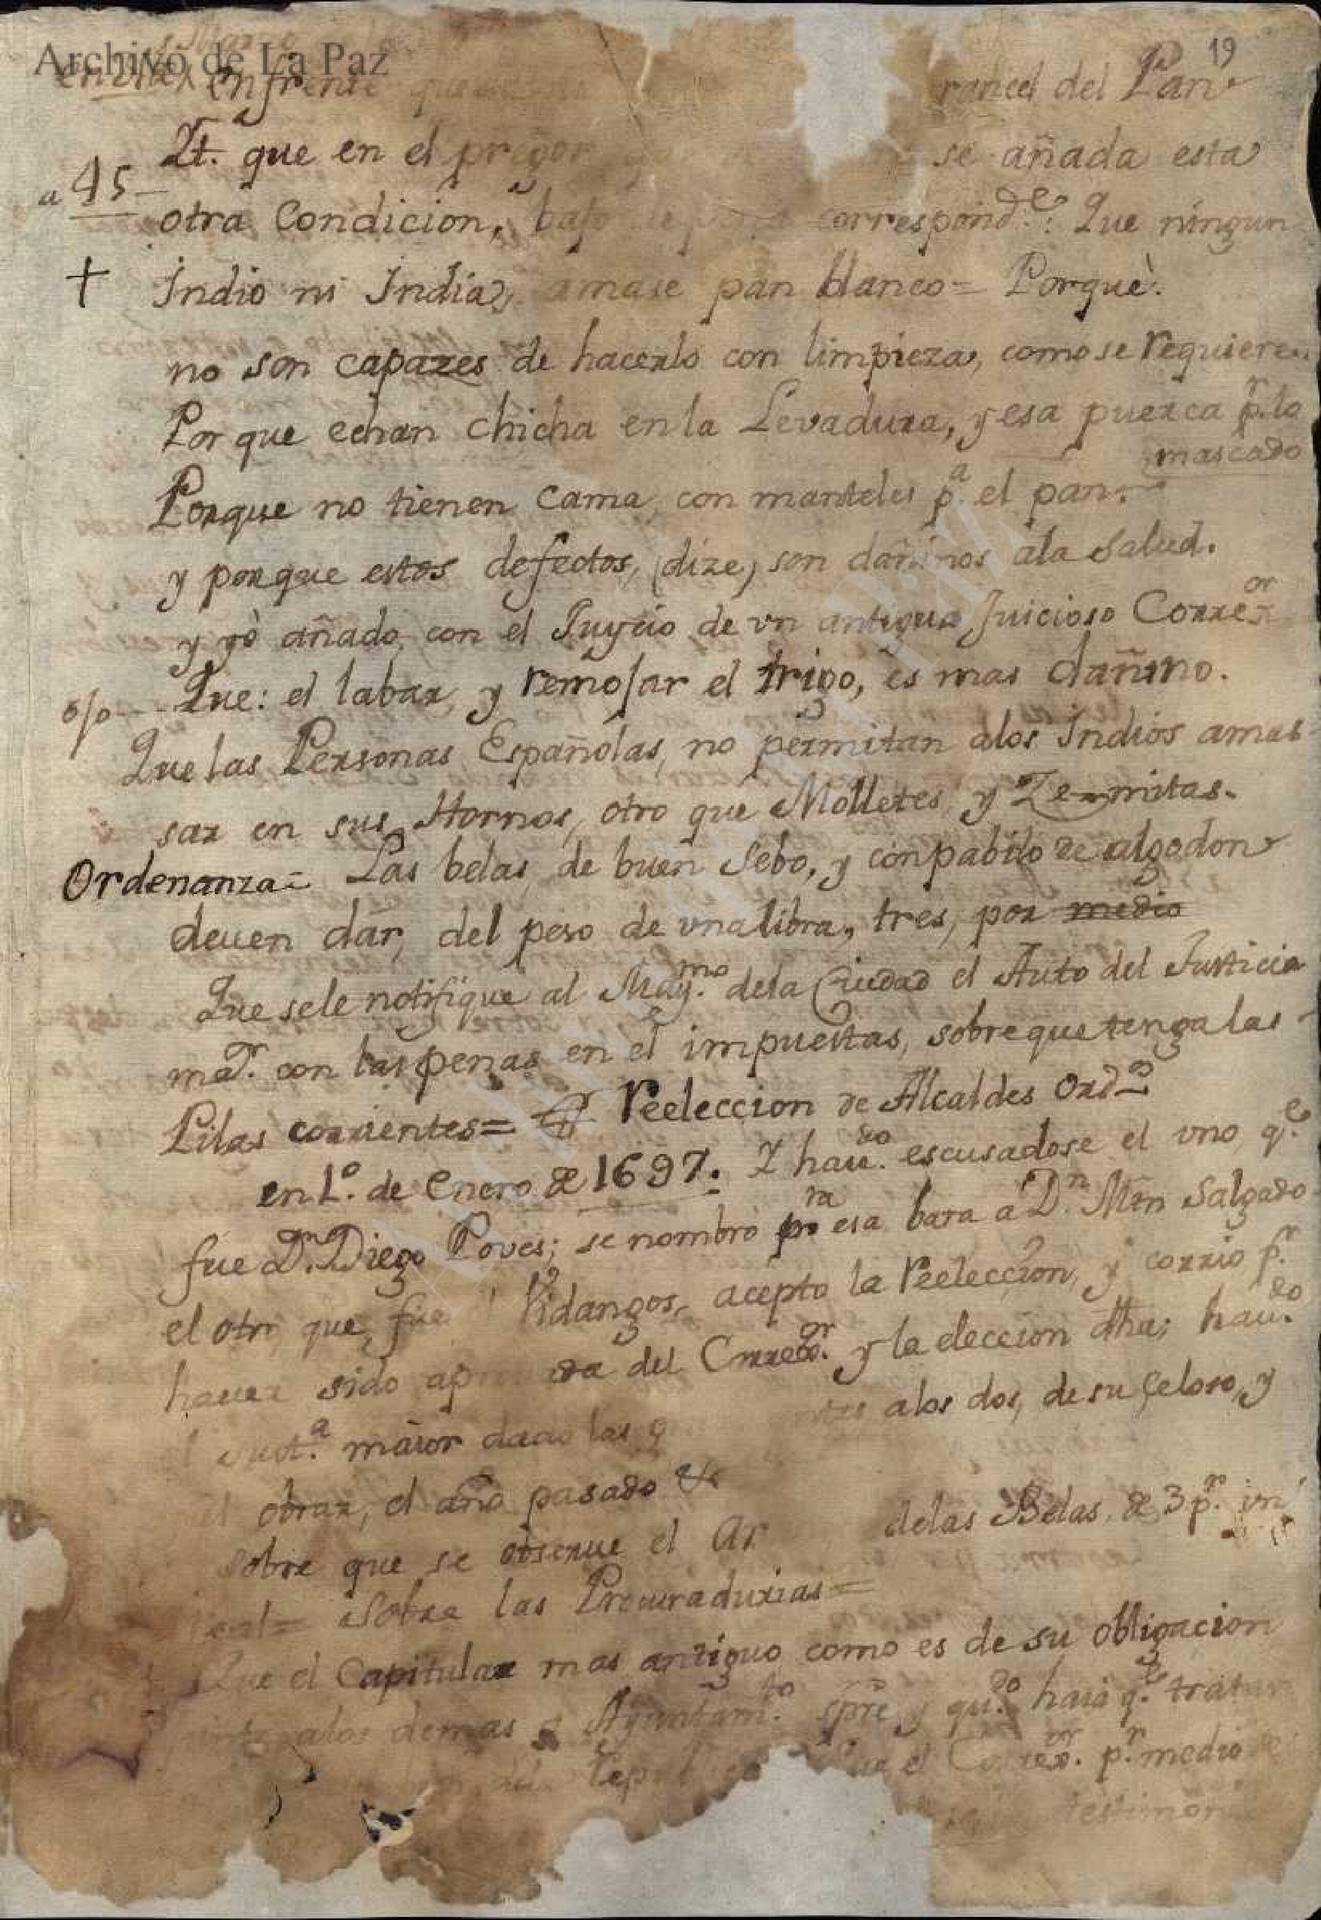 Archivo de La Paz
19
en frente rancel del Pan
Yt. que en el pregon se añada esta
a 45
otra Condicion, bajo correspondᵉ: Que ningun
+ Indio ni India, amase pan blanco = Porquè.
no son capazes de hacerlo con limpieza, como se requiere
Por que echan chicha en la Levadura, y esa puerca pʳ. lo
mascado
Porque no tienen cama, con manteles pᵃ. el pan.
y porque estos defectos, (dize) son dañinos ala Salud.
y yò añado, con el Juycio de vn antiguo Juicioso Correᵒʳ
ojo — Que: el labar, y remojar el trigo, es mas dañino.
Que las Personas Españolas, no permitan alos Indios amas
sar en sus Hornos, otro que Molletes y Zemitas.
Ordenanza = Las belas, de buen Sebo, y con pabilo de algodon
deuen dar, del peso de vna libra, tres, por medio
Que sele notifique al Mayᵐᵒ. dela Ciudad el Auto del Justicia
maʳ. con las penas en el impuestas, sobre que tenga las
Pilas corrientes = reeleccion de Alcaldes Ordˢ
en 1º. de Enero de 1697. Y hauᵈᵒ. escusadose el vno, qᵉ.
fue Dⁿ. Diego Poves; se nombrò pᵃʳᵃ esa bara à Dⁿ. Mrn Salgado
el otro que fue Vidangos, acepto la reeleccion, y corrio pʳ.
hauer sido apro da del Correᵒʳ. y la eleccion dha; hauᵈᵒ.
Justᵃ. maior dado las g alos dos, de su çeloso, y
obrar, el año pasado &
sobre que se obserue el Ar delas Belas, de 3 pʳ. vn
real = Sobre las Procuradurias =
Que el Capitular mas antiguo como es de su obligacion
alos demas a Ayuntamᵗᵒ. spre, y quᵈᵒ. haia qᵉ. tratar
el Correᵒʳ. pʳ. medio
testimoni